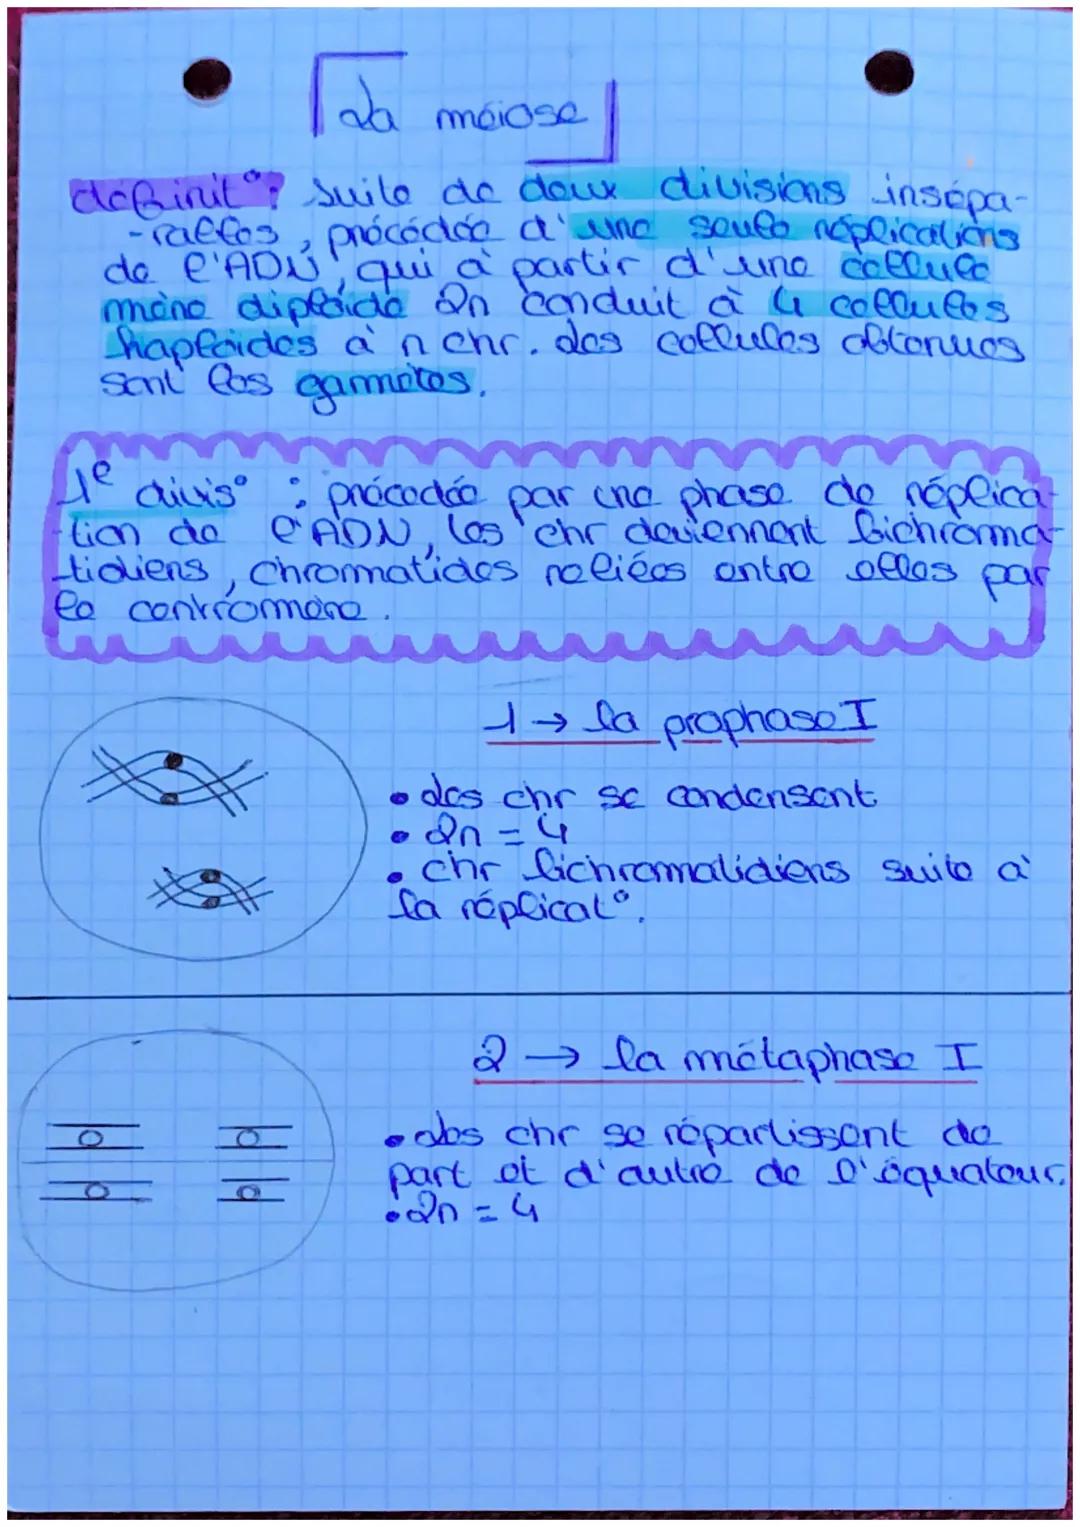 La méiose
définit°: suite de deux divisions insépa-
-rables, précédée d'une seule réplications
de l'ADN, qui à partir d'une cellule
mère diploïde 2n conduit à 4 cellules
haploïdes à n chr. des cellules obtenues
sont les gamètes.
1e divis° : précédée par une phase de réplica-
-tion de l'ADN, les chr deviennent bichroma-
-tidiens, chromatides reliées entre elles par
le centromère.
1 → la prophase I
• des chr se condensent
• 2n = 4
• chr bichromatidiens suite à
la réplicat°.
2 → la métaphase I
• des chr se répartissent de
part et d'autre de l'équateur.
• 2n = 4